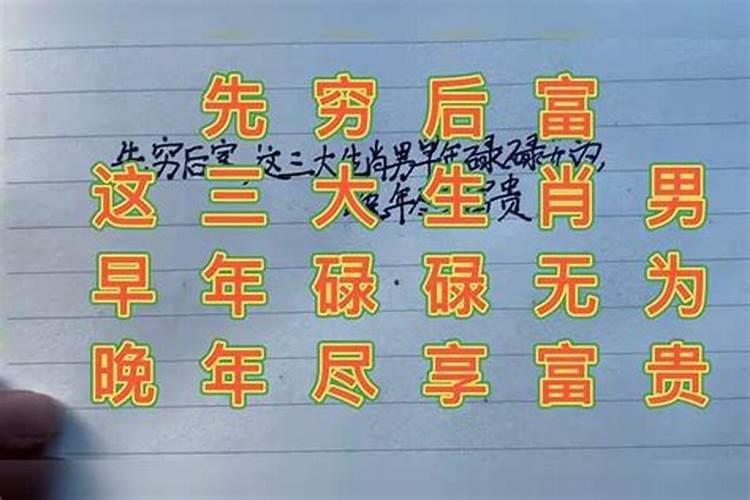 先穷后富
先穷后富,这三大生肖男早年碌碌无为,
晚年尽享富贵
这三大生肖男
早年碌碌无为
晚年尽享富贵